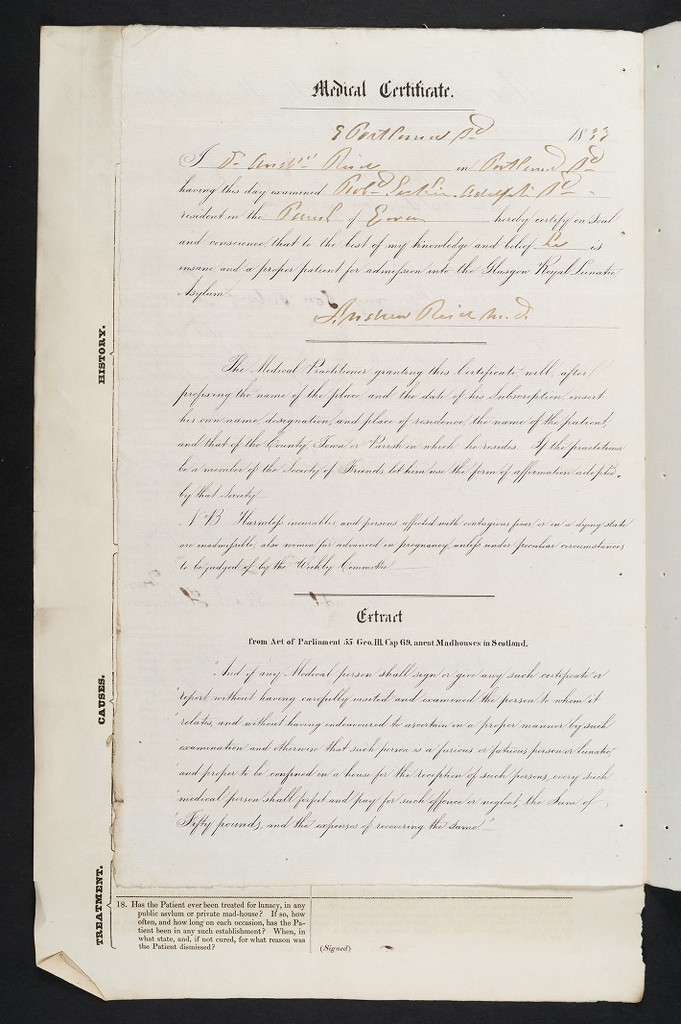 Medical Certificate.
Portland St 1833
I Dr And.w Reid in Portland St
having this day examined Robt Adelphi St
resident in the Parish of Govan hereby certify on Soul
and conscience, that to the best of my knowledge and belief he is
insane and a proper patient for admission into the Glasgow Royal Lunatic
Asylum
Andrew Reid M.D.
The Medical Practitioner granting this Certificate will, after
prefixing the name of the place, and the date of his Subscription, insert
his own name, designation, and place of residence, the name of the patient,
and that of the County, Town or Parish in which he resides. If the practitioner
be a member of the Society of Friends, let him use the form of affirmation adopted
by that Society
N.B. Harmless incurables, and persons affected with contagious fever or in a dying state
are inadmissible, also women far advanced in pregnancy, unless under peculiar circumstances
to be judged of by the Weekly Committee
Extract
from Act of Parliament 55 Geo. III. Cap 69, anent Madhouses in Scotland.
"And if any Medical person shall sign or give any such certificate or
"report, without having carefully visited and examined the person to whom it
"relates, and without having endeavoured to ascertain in a proper manner by such
"examination and otherwise that such person is a furious or fatuous person or lunatic,
"and proper to be confined in a house for the reception of such persons, every such
"medical person shall forfeit and pay for such offence or neglect, the Sum of
"Fifty pounds, and the expenses of recovering the same"
HISTORY.
CAUSES.
TREATMENT.
18. Has the Patient ever been treated for lunacy, in any
public asylum or private mad-house? If so, how
often, and how long on each occasion, has the Pa-
tient been in any such establishment? When, in
what state, and, if not cured, for what reason was
the Patient dismissed?
(Signed)